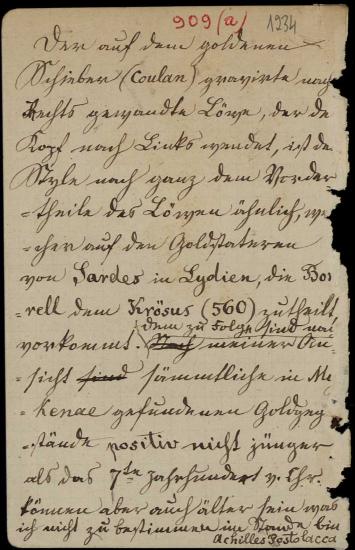 909 (a) 1234
Der auf dem goldenen
Schieber (Coulan) gravirte nach
Rechts gewandte Löwe, der de
Kopf nach Links wendet, ist de
Style nach ganz dem Vorder
-theile des Löwen ähnlich, we
-cher auf den Goldstateren
von Sardes in Lydien, die Bor
-rell dem Krösus (560) zutheilt,
dem zu Folge sind na
vorkommt. Nach meiner An
sicht sind sämmtliche in My
-kenae gefundenen Goldgeg
-stände positiv nicht jünger
als das 7te Jahrhundert v. Chr.
können aber auch älter sein was
ich nicht zu bestimmen im Stande bin
Achilles Postolacca